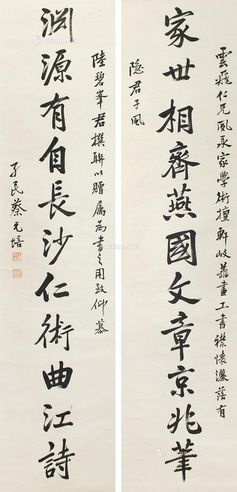 雲飛仁兄夙承家學術擅軒岐蕭畫工書襟懷瀟落有
家世相齊燕國文章京兆筆
隱君子風
陸碧峯君撰聯以贈屬為書之用致仰慕
淵源有自長沙仁術曲江詩
孑民蔡元培